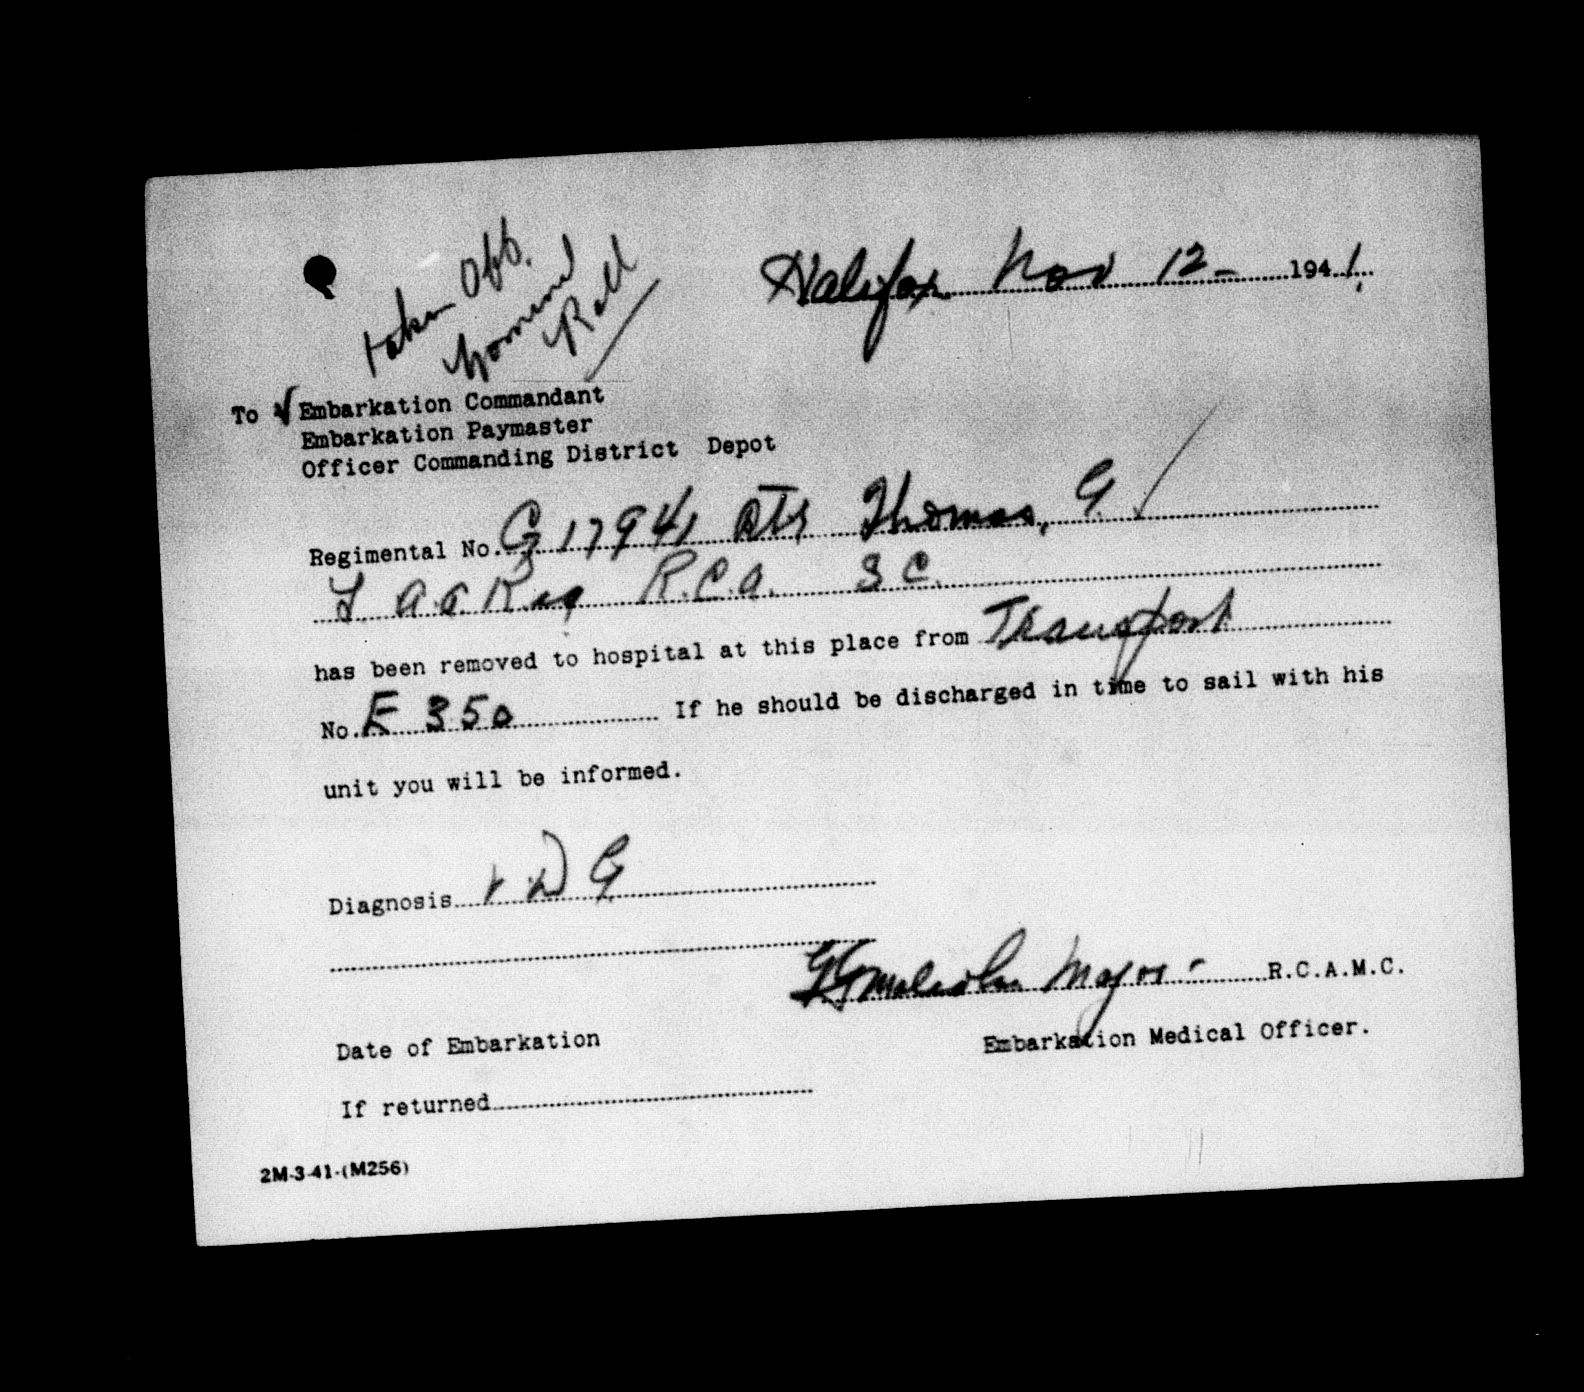 taken Off.
Nominal
Roll
Halifax Nov 12- 1941.
To ✓ Embarkation Commandant
Embarkation Paymaster
Officer Commanding District Depot
Regimental No. G 17941 Thomas, G.
L A.A Reg R.C.A. S C.
has been removed to hospital at this place from Transport
No. E 350 If he should be discharged in time to sail with his
unit you will be informed.
Diagnosis V D G
Major - R.C.A.M.C.
Date of Embarkation
Embarkation Medical Officer.
If returned
2M-3-41-(M256)